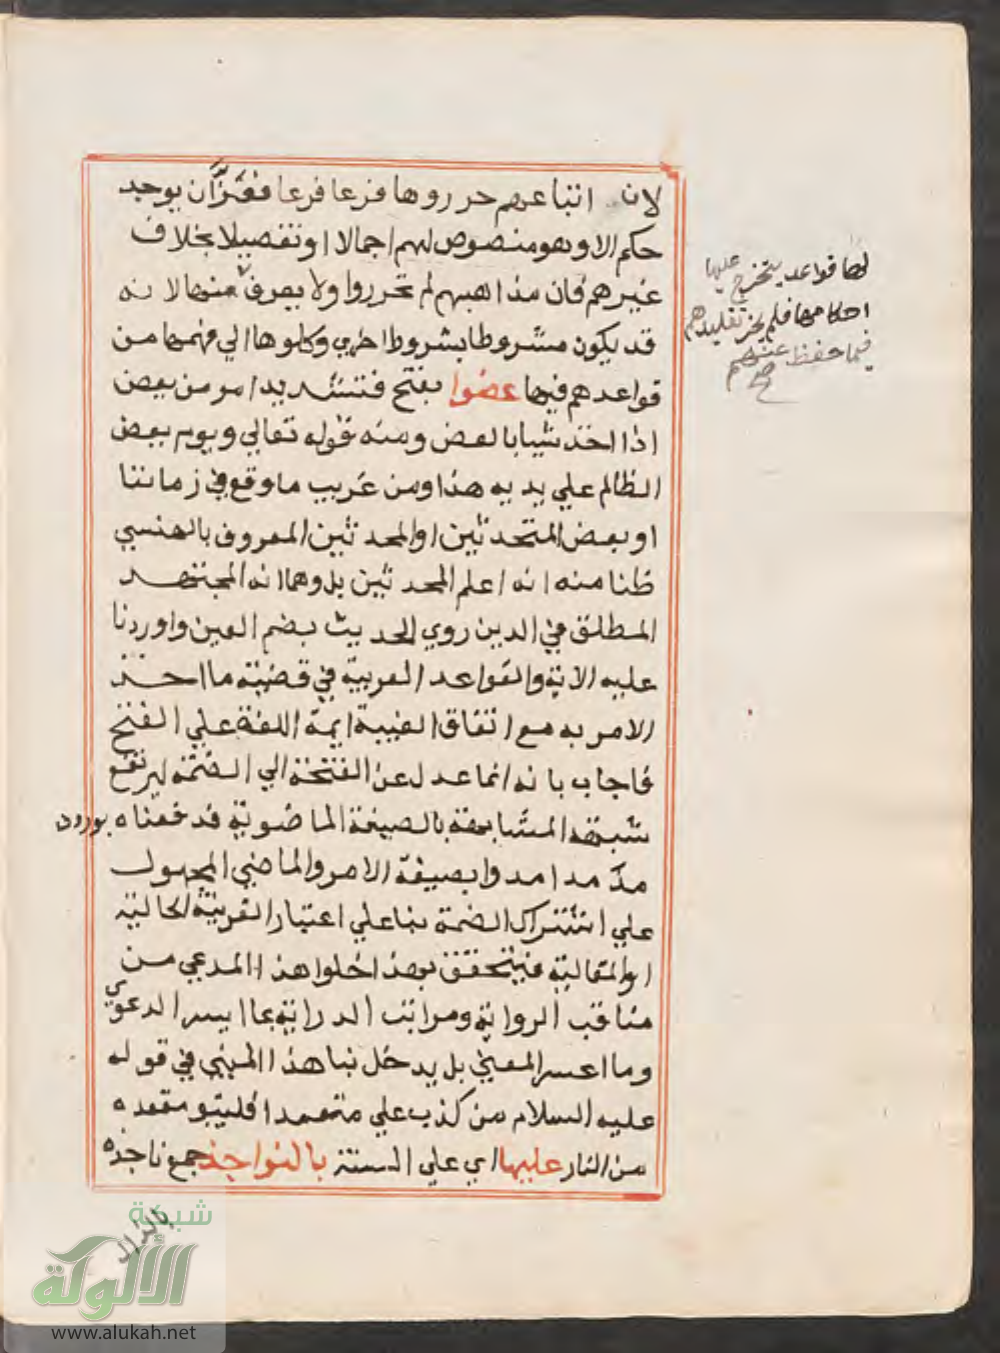 لان اتباعهم حرروها فرعا فرعا فعزّ ان يوجد
حكم الا وهو منصوص لهم اجمالا او تفصيلا بخلاف
غيرهم فان مذاهبهم لم تحرروا ولا يعرف منها لانه
قد يكون مشروطا بشروط اخري وكلوها الي فهمها من
قواعدهم فيها عضوا بفتح فتشديد امر من بعض
اذا اخذ شيا بالعض ومنه قوله تعالي ويوم يعض
الظالم علي يديه هذا ومن غريب ما وقع في زماننا
او بعض المتحدثين او المحدثين المعروف
ظنا منه انه اعلم المحدثين بل وهما انه المجتهد
المطلق في الدين روي الحديث بضم العين واوردنا
عليه الاية والقواعد العربية في قضية ما اخذ
الامر به مع اتفاق ايمة اللغة علي الفتح
فاجاب بانه انما عدل عن الفتحة الي الضمة ليرتفع
شبهة المشابهة بالصيغة الماضوية فدفعناه بورود
مدّ مدا مدوا بصيغة الامر والماضي المجهول
علي اشتراك الضمة بنا علي اعتبار القرينة الحالية
او المقالية فيتحقق بهذا خلو هذا المدعي من
مناقب الرواية ومراتب الدراية فما ايسر الدعوي
وما اعسر المعني بل يدخل بنا هذا المبني في قوله
عليه السلام من كذب علي متعمدا فليتبو مقعده
من النار عليها اي علي السنة بالنواجذ جمع ناجذه
بالذال
لها قواعد يتخرج عليها
احكامها فلم يجز تقليدهم
فيما حفظ عنهم
صح
شبكة
الألوكة
www.alukah.net